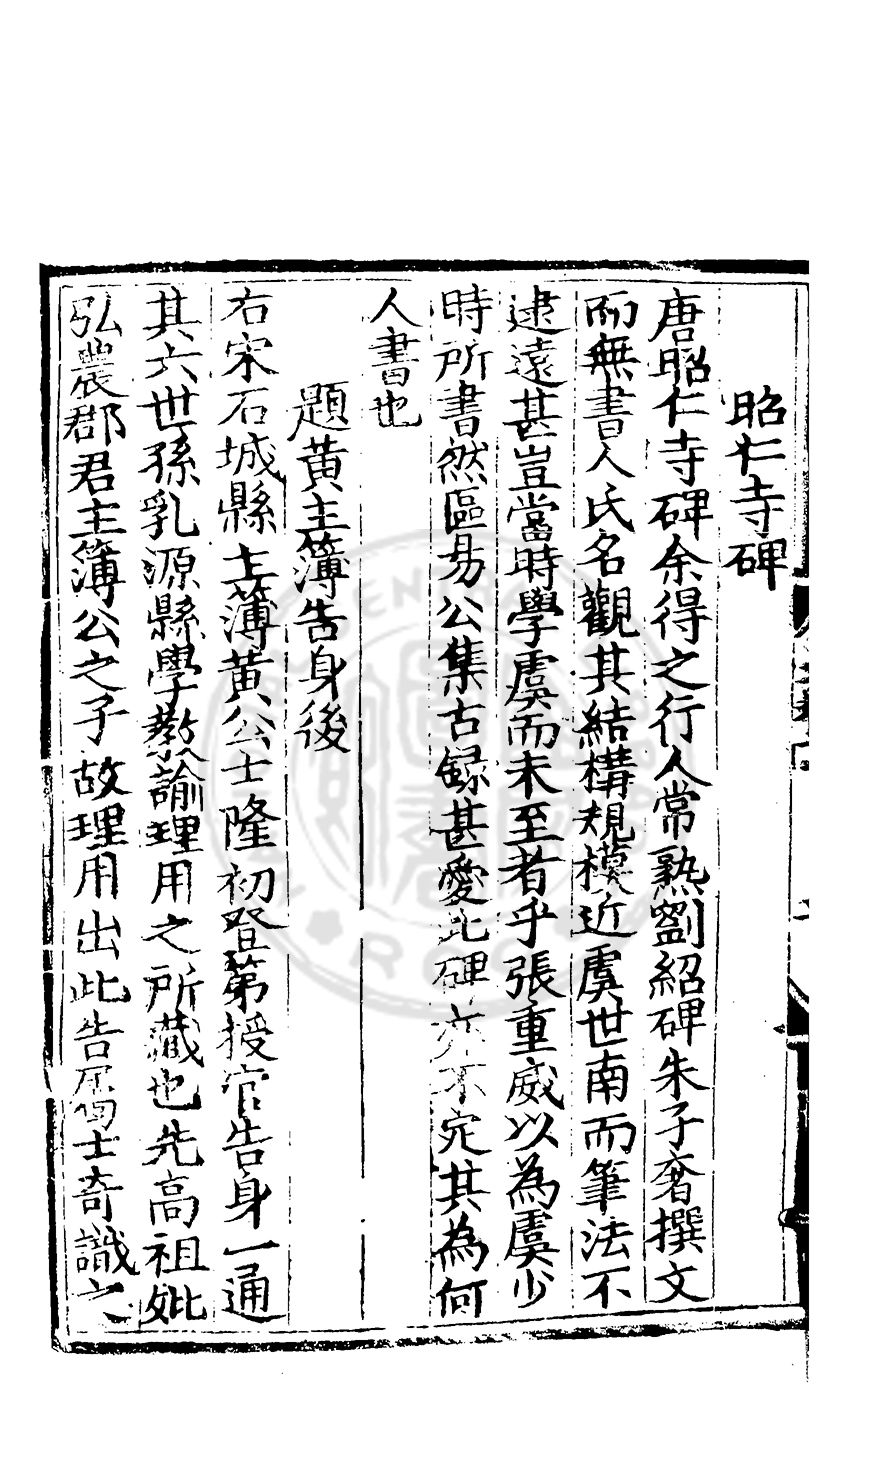 昭仁寺碑
唐昭仁寺碑余得之行人常熟劉紹碑朱子奢撰文
而無書人氏名觀其結構規模近虞世南而筆法不
逮遠甚豈當時學虞而未至者乎張重威以為虞少
時所書然區易公集古録甚愛此碑亦不定其為何
人書也
題黄主簿告身後
右宋石城縣主薄黄公士隆初登第授官告身一通
其六世孫乳源縣學教諭理用之所藏也先高祖妣
弘農郡君主簿公之子故理用出此告屬士奇識之